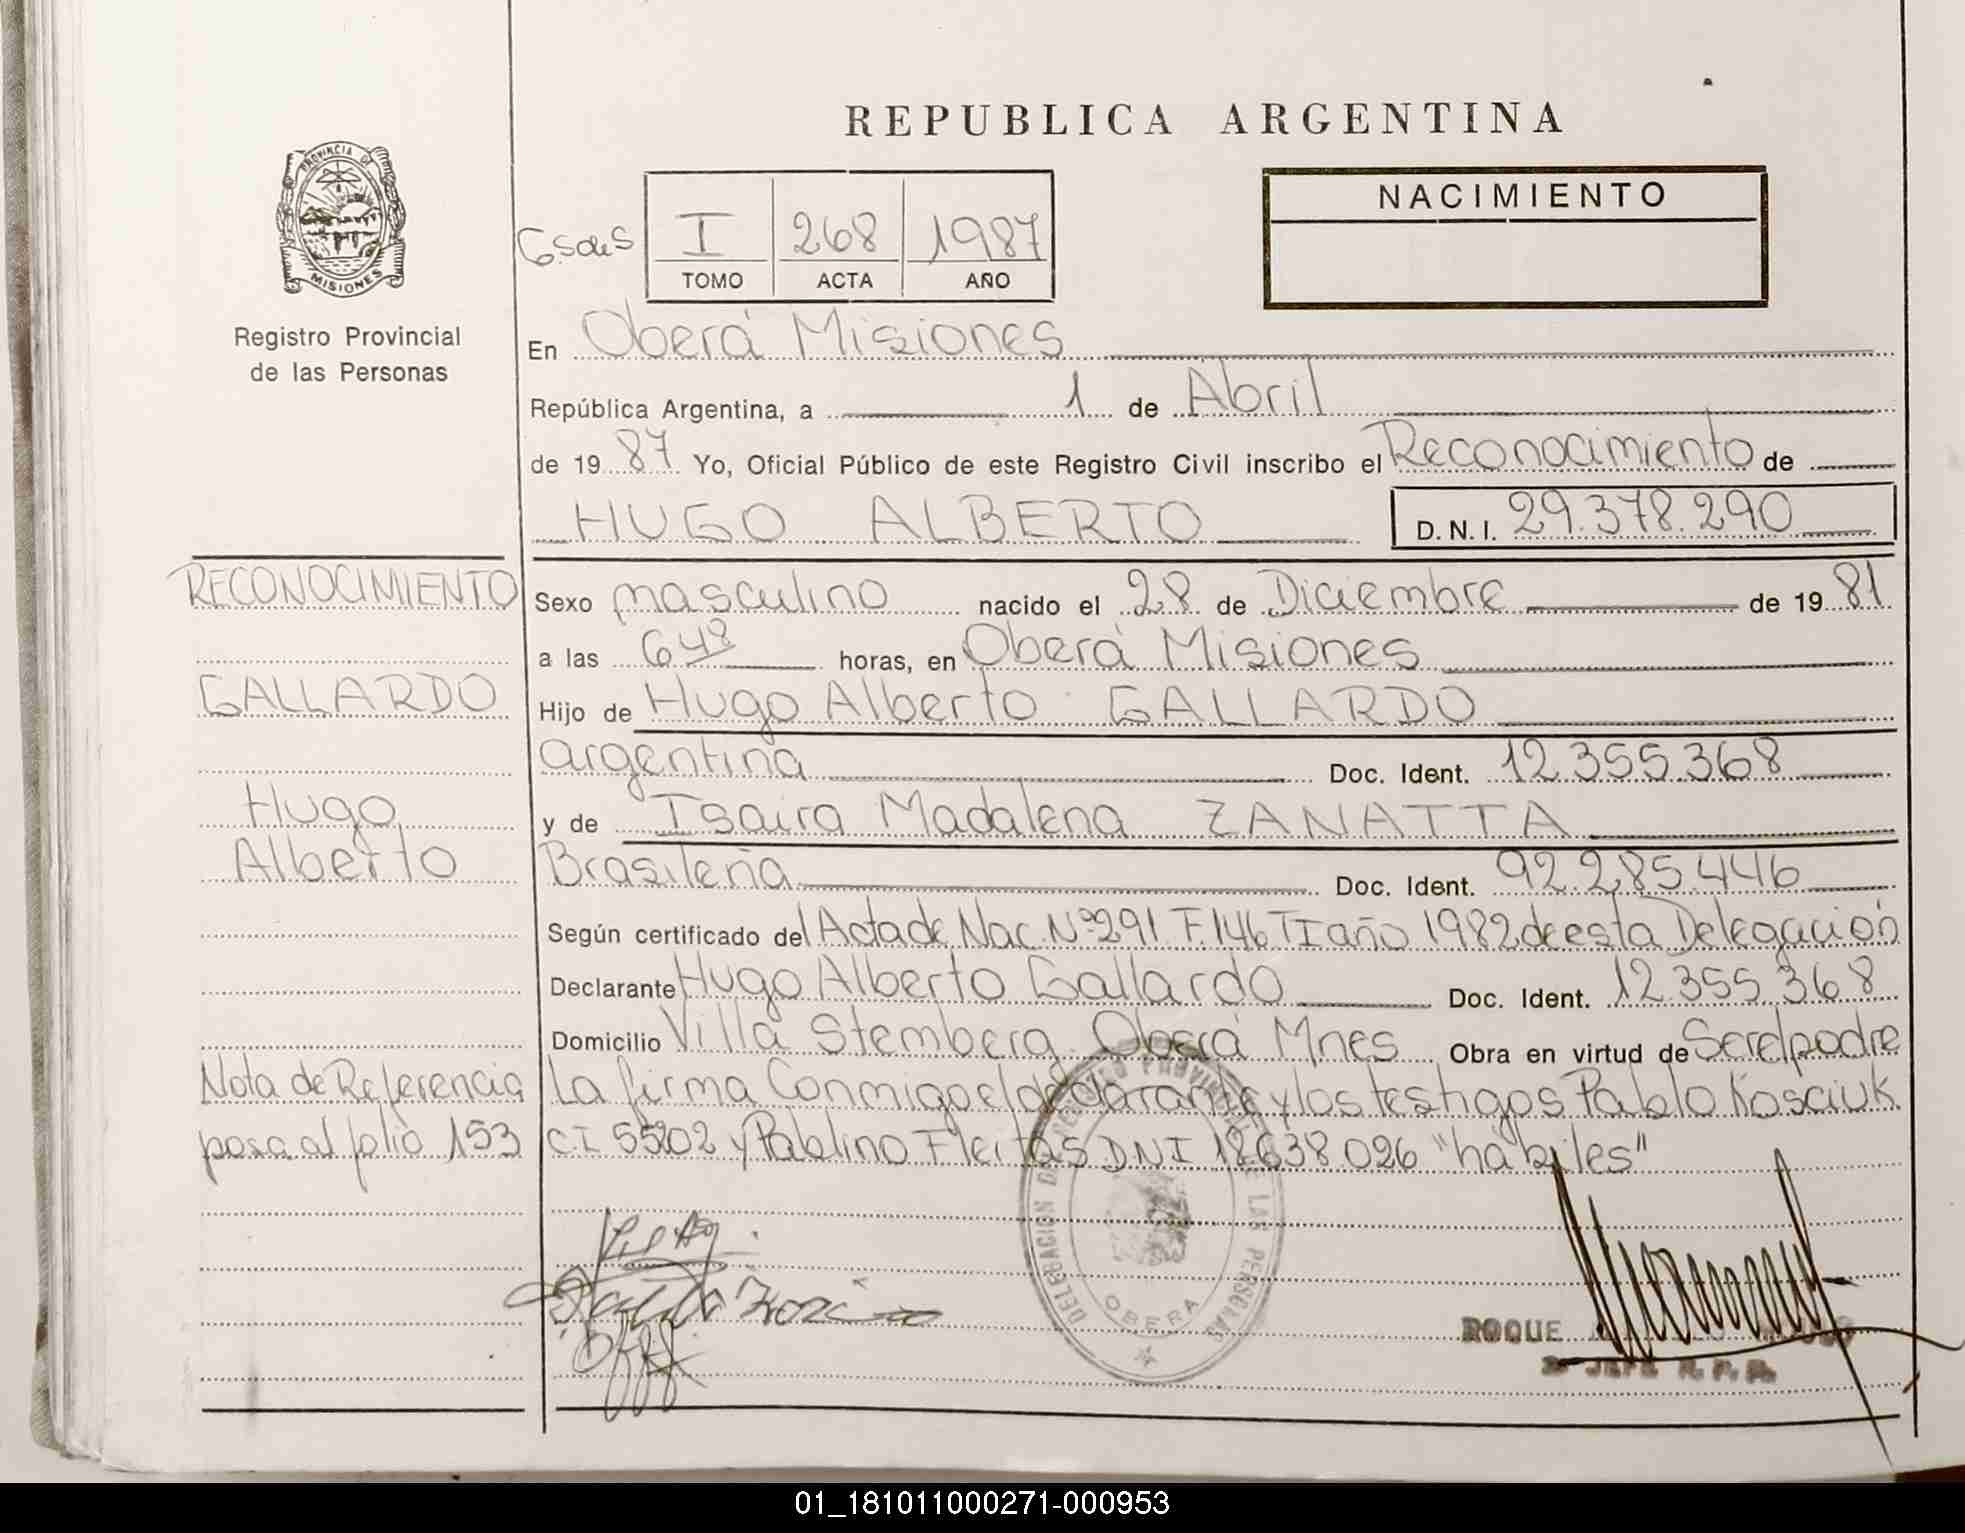 REPUBLICA ARGENTINA
PROVINCIA DE
MISIONES
Registro Provincial
de las Personas
I 268 1987
TOMO ACTA AÑO
NACIMIENTO
En Oberá Misiones
República Argentina, a 1 de Abril
de 1987 Yo, Oficial Público de este Registro Civil inscribo el Reconocimiento de
HUGO ALBERTO D.N.I. 29.378.290
RECONOCIMIENTO
GALLARDO
Hugo
Alberto
Nota de Referencia
pasa al folio 153
Sexo masculino nacido el 28 de Diciembre de 1981
a las 6 48 horas, en Oberá Misiones
Hijo de Hugo Alberto GALLARDO
argentina Doc. Ident. 12.355.368
y de Isaira Madalena ZANATTA
Brasileña Doc. Ident. 92.285.446
Según certificado del Acta de Nac. Nº 291 F.146 TI año 1982 de esta Delegación
Declarante Hugo Alberto Gallardo Doc. Ident. 12.355.368
Domicilio Villa Stemberg Oberá Mnes Obra en virtud de Ser el padre
La firma Conmigo el declarante y los testigos Pablo Kosciuk
C.I 55202 y Pablino Fleitas DNI 18638.026 "hábiles"
DELEGACION DEL REGISTRO PROVINCIAL DE LAS PERSONAS
OBERA
ROQUE
2º JEFE R.P.P.
01_181011000271-000953